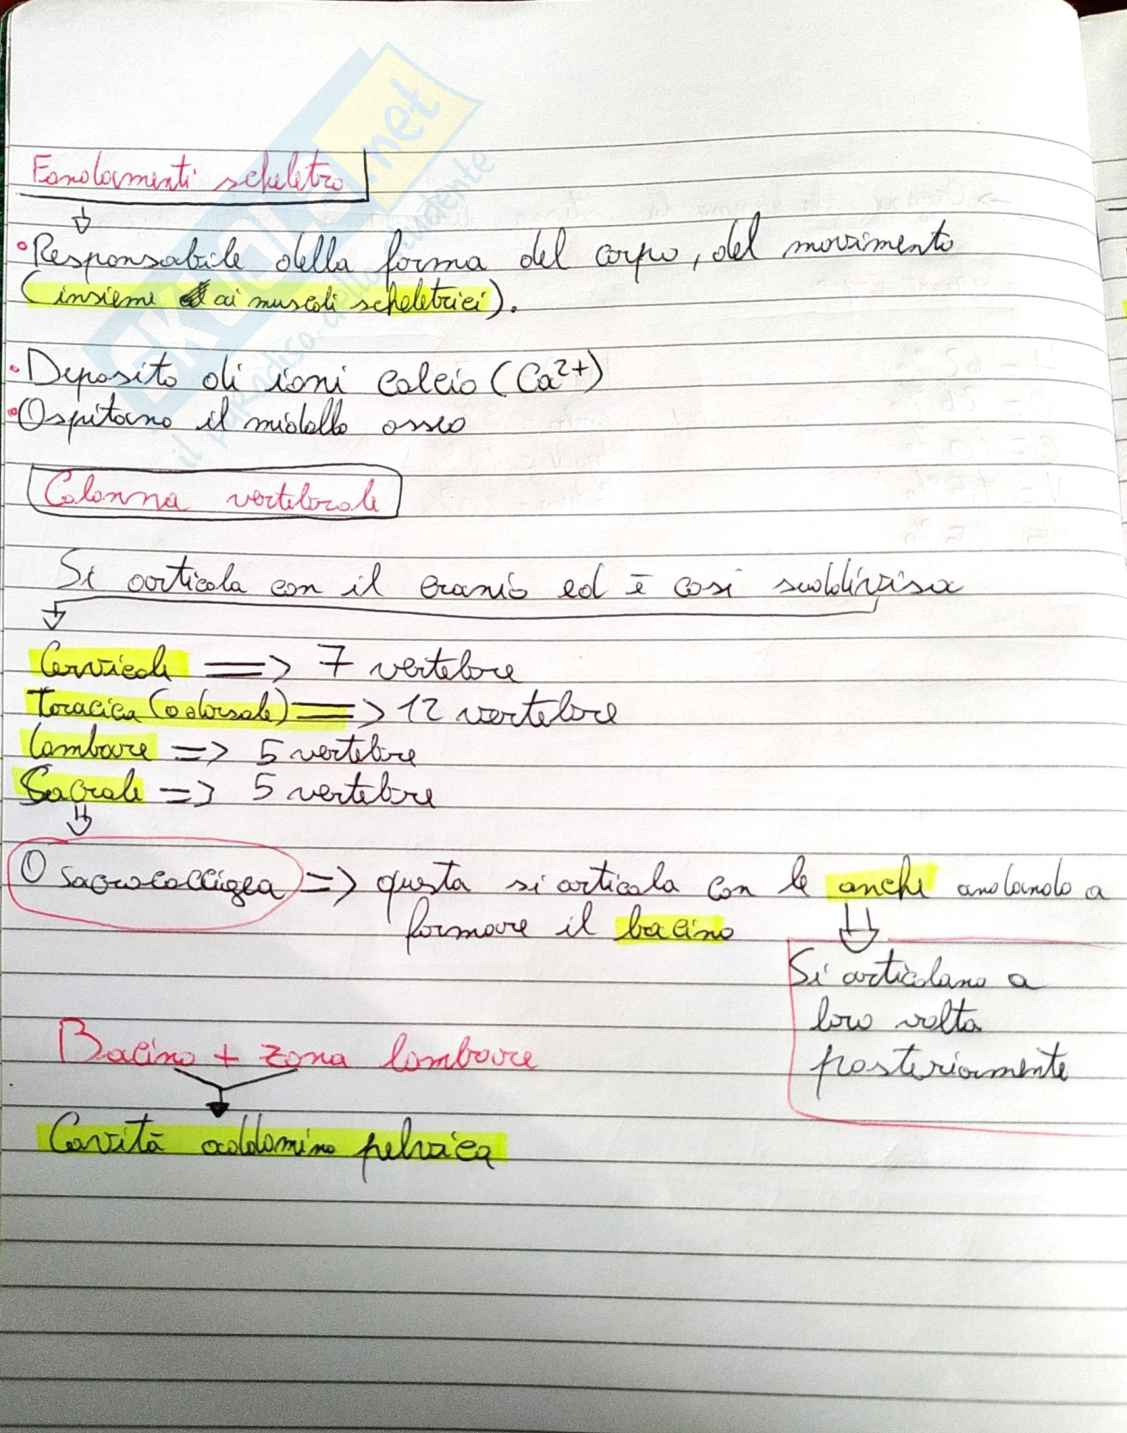 Fondamenti scheletro
• Responsabile della forma del corpo, del movimento
(insieme ai muscoli scheletrici).
• Deposito di ioni calcio (Ca²⁺)
• Ospitano il midollo osseo
Colonna vertebrale
Si articola con il cranio ed è così suddivisa
Cervicale => 7 vertebre
Toracica (o dorsale) => 12 vertebre
lombare => 5 vertebre
Sacrale => 5 vertebre
O sacrococcigea => questa si articola con le anche andando a
formare il bacino
Si articolano a
loro volta
posteriormente
Bacino + zona lombare
Cavità addomino pelvica
.net